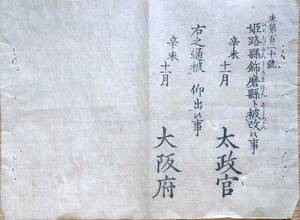 未第百二十號
姫路縣飾磨縣ト被改候事
辛未十一月
太政官
右之通被 仰出候事
辛未十一月
大阪府